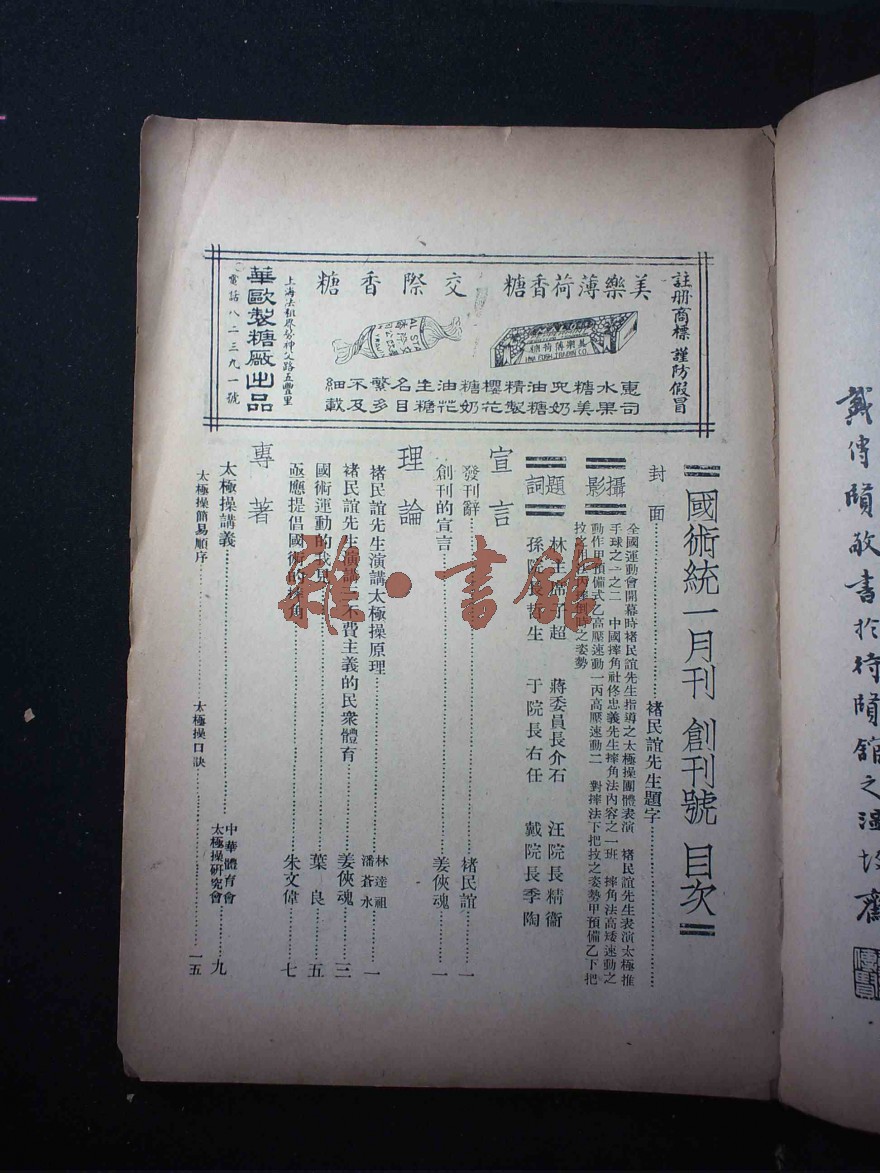 註册商標 謹防假冒
美樂薄荷香糖
交際香糖
美樂薄荷糖
惠水糖兜油精櫻糖油生名繁不細
司果美奶糖製花奶花糖目多及載
上海法租界勞神父路五豐里
華歐製糖廠出品
電話八二三九一號
國術統一月刊 創刊號 目次
封面……褚民誼先生題字
攝影
全國運動會開幕時褚民誼先生指導之太極操團體表演 褚民誼先生表演太極推
手球之一之二 中國摔角社佟忠義先生摔角法內容之一班 摔角法高矮速動之
動作甲預備式乙高壓速動一丙高壓速動二 對摔法下把扠之姿勢甲預備乙下把
題詞
林主席子超 蔣委員長介石 汪院長精衞
孫院長哲生 于院長右任 戴院長季陶
宣言
發刊辭……褚民誼……一
創刊的宣言……姜俠魂……一
理論
褚民誼先生演講太極操原理……林達祖 潘蒼永……一
褚民誼先生演講不費主義的民衆體育……姜俠魂……三
國術運動的我見……葉良……五
亟應提倡國術的摔角……朱文偉……七
專著
太極操講義……中華體育會 太極操研究會……九
太極操簡易順序……太極操口訣……一五
戴傳賢敬書於待賢館之
雜·書館